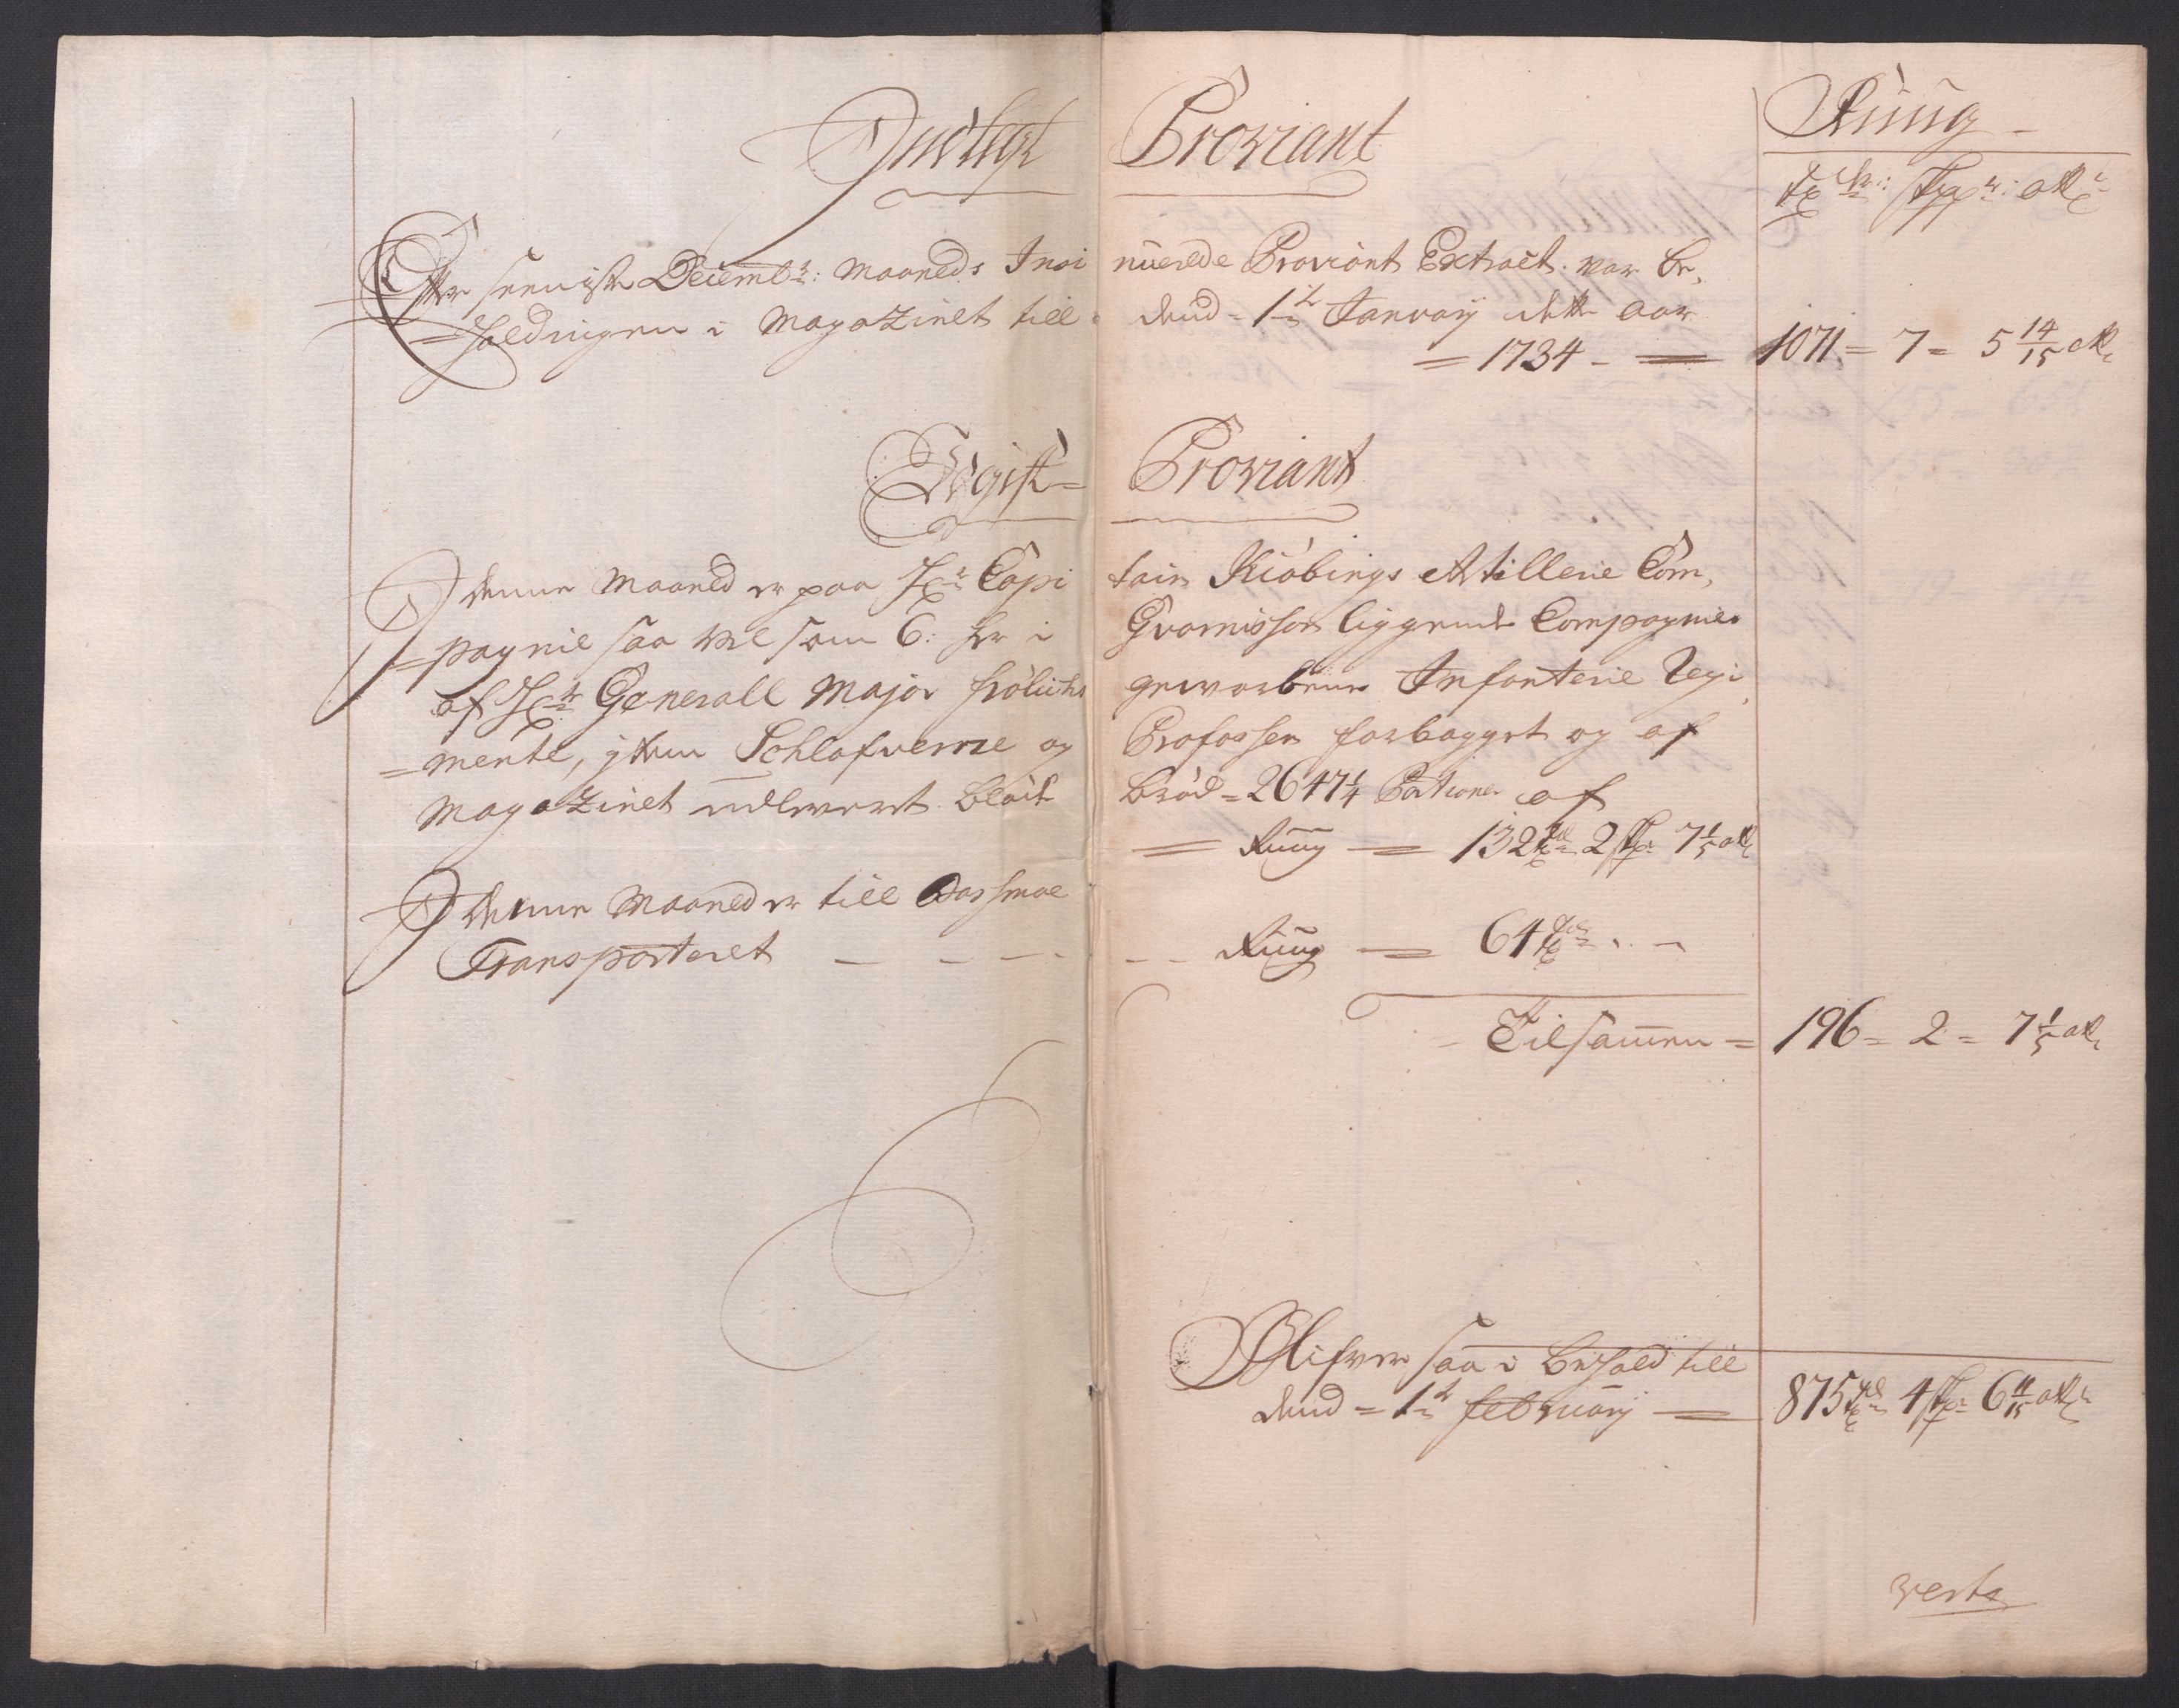 Indtegt Proviant
Ruug
Tdr: Skpr: ottr
Efter seeniste Decembr: Maaneds Insi nuerede Proviant Extract var be,
=holdningen i Magazinet till dend = 1te Janvarij dette aar
= 1734 - = 1071 = 7 = 5 14/15 ott
Udgift = Proviant
I denne Maaned er paa Hr Capi tain Kiöbings Artillerie Com,
=pagnie saa vel som 6: her i Gvarnisson liggende Compagnier
af Hr Generall Major Frölichs gevorbene Infanterie Regi,
=mente, jtem Schlafverne og Profossen forbagget og af
Magazinet udleveret. Blöit Bröd = 26471/4 Portioner af
= Ruug = 132 Tdr 2 Skpr 7 1/5 ott
I denne Maaned er till
Transporteret - - - - - Ruug = 64 Tdr - -
Tilsamen = 196 = 2 = 7 1/5 ott
Blifver saa i Behold till
dend = 1te Februarij = 875 Tdr 4 Skpr 6 11/15 ottr
verte